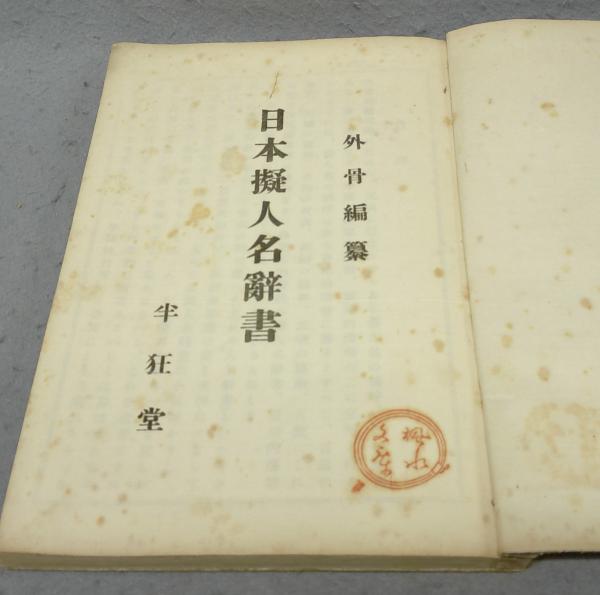 外骨編纂
日本擬人名辭書
半狂堂